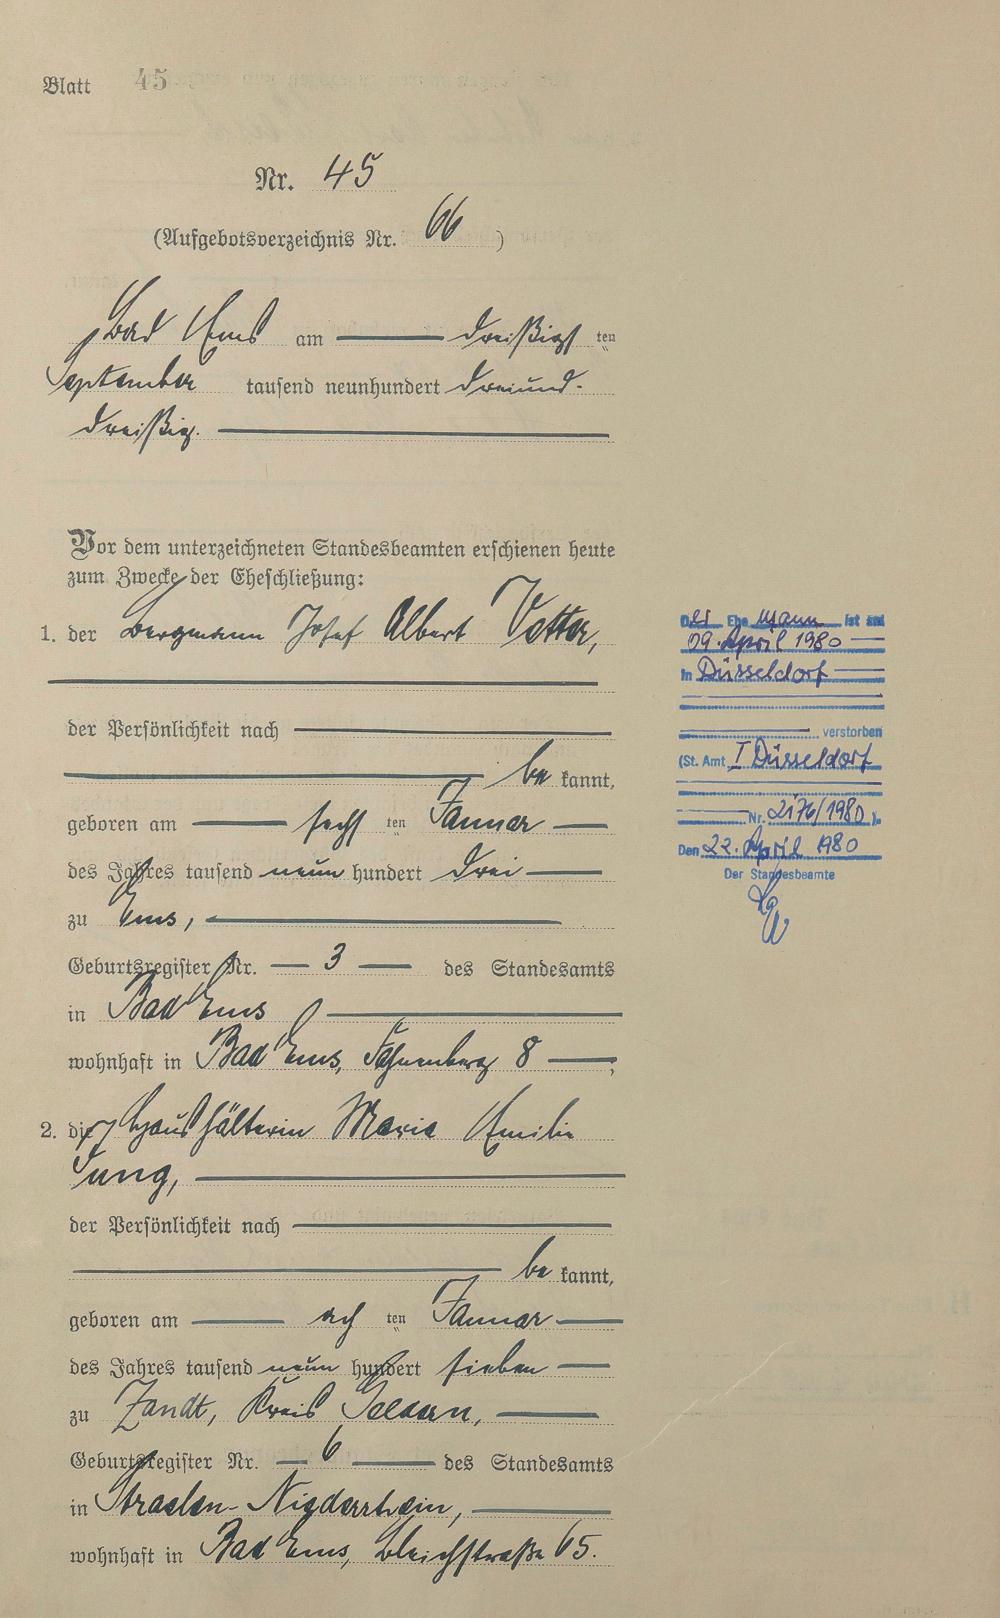 Blatt 45
Nr. 45
(Aufgebotsverzeichnis Nr. 66)
Bad Ems am dreißigsten
September tausend neunhundert dreiund-
dreißig.
Vor dem unterzeichneten Standesbeamten erschienen heute
zum Zwecke der Eheschließung:
1. der Bergmann Josef Albert Vetter,
der Persönlichkeit nach
be kannt,
geboren am sechs ten Januar
des Jahres tausend neun hundert drei
zu Ems,
Geburtsregister Nr. 3 des Standesamts
in Bad Ems
wohnhaft in Bad Ems, Fahnenberg 8,
2. die Haushälterin Maria Emilie
Jung,
der Persönlichkeit nach
be kannt,
geboren am ach ten Januar
des Jahres tausend neun hundert sieben
zu Zandt, Kreis Geldern,
Geburtsregister Nr. 6 des Standesamts
in Straelen-Niederrhein,
wohnhaft in Bad Ems, Bleichstraße 65.
Der Ehemann ist am
09. April 1980
in Düsseldorf
verstorben
(St. Amt I Düsseldorf
Nr. 2176/1980).
Den 22. April 1980
Der Standesbeamte